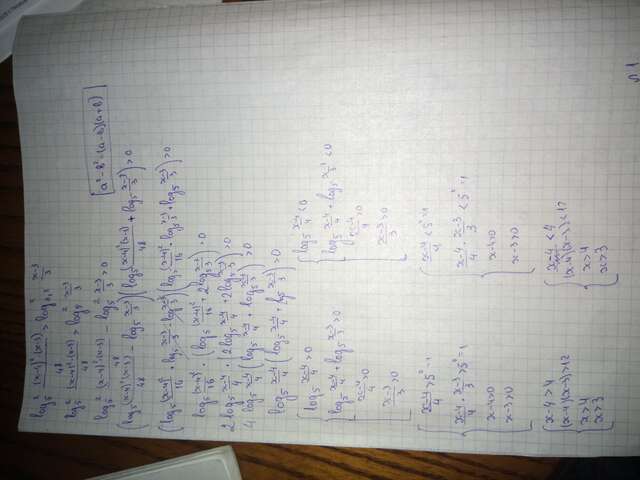 log₅² (x-4)²(x-3)/48 > log₀,₂² (x-3)/3
log₅² (x-4)²(x-3)/48 > log₅² (x-3)/3
log₅² (x-4)²(x-3)/48 - log₅² (x-3)/3 > 0
a² - b² = (a-b)(a+b)
(log₅ (x-4)²(x-3)/48 - log₅ (x-3)/3)(log₅ (x-4)²(x-3)/48 + log₅ (x-3)/3) > 0
(log₅ (x-4)²/16 + log₅ (x-3)/3 - log₅ (x-3)/3)(log₅ (x-4)²/16 + log₅ (x-3)/3 + log₅ (x-3)/3) > 0
log₅ (x-4)²/16 · (log₅ (x-4)²/16 + 2log₅ (x-3)/3) > 0
2log₅ (x-4)/4 (2log₅ (x-4)/4 + 2log₅ (x-3)/3) > 0
4log₅ (x-4)/4 (log₅ (x-4)/4 + log₅ (x-3)/3) > 0
log₅ (x-4)/4 (log₅ (x-4)/4 + log₅ (x-3)/3) > 0
log₅ (x-4)/4 > 0
log₅ (x-4)/4 + log₅ (x-3)/3 > 0
(x-4)/4 > 0
(x-3)/3 > 0
log₅ (x-4)/4 < 0
log₅ (x-4)/4 + log₅ (x-3)/3 < 0
(x-4)/4 > 0
(x-3)/3 > 0
(x-4)/4 > 5⁰ = 1
(x-4)/4 · (x-3)/3 > 5⁰ = 1
x-4 > 0
x-3 > 0
(x-4)/4 < 5⁰ = 1
(x-4)/4 · (x-3)/3 < 5⁰ = 1
x-4 > 0
x-3 > 0
x-4 > 4
(x-4)(x-3) > 12
x > 4
x > 3
x-4 < 4
(x-4)(x-3) < 12
x > 4
x > 3